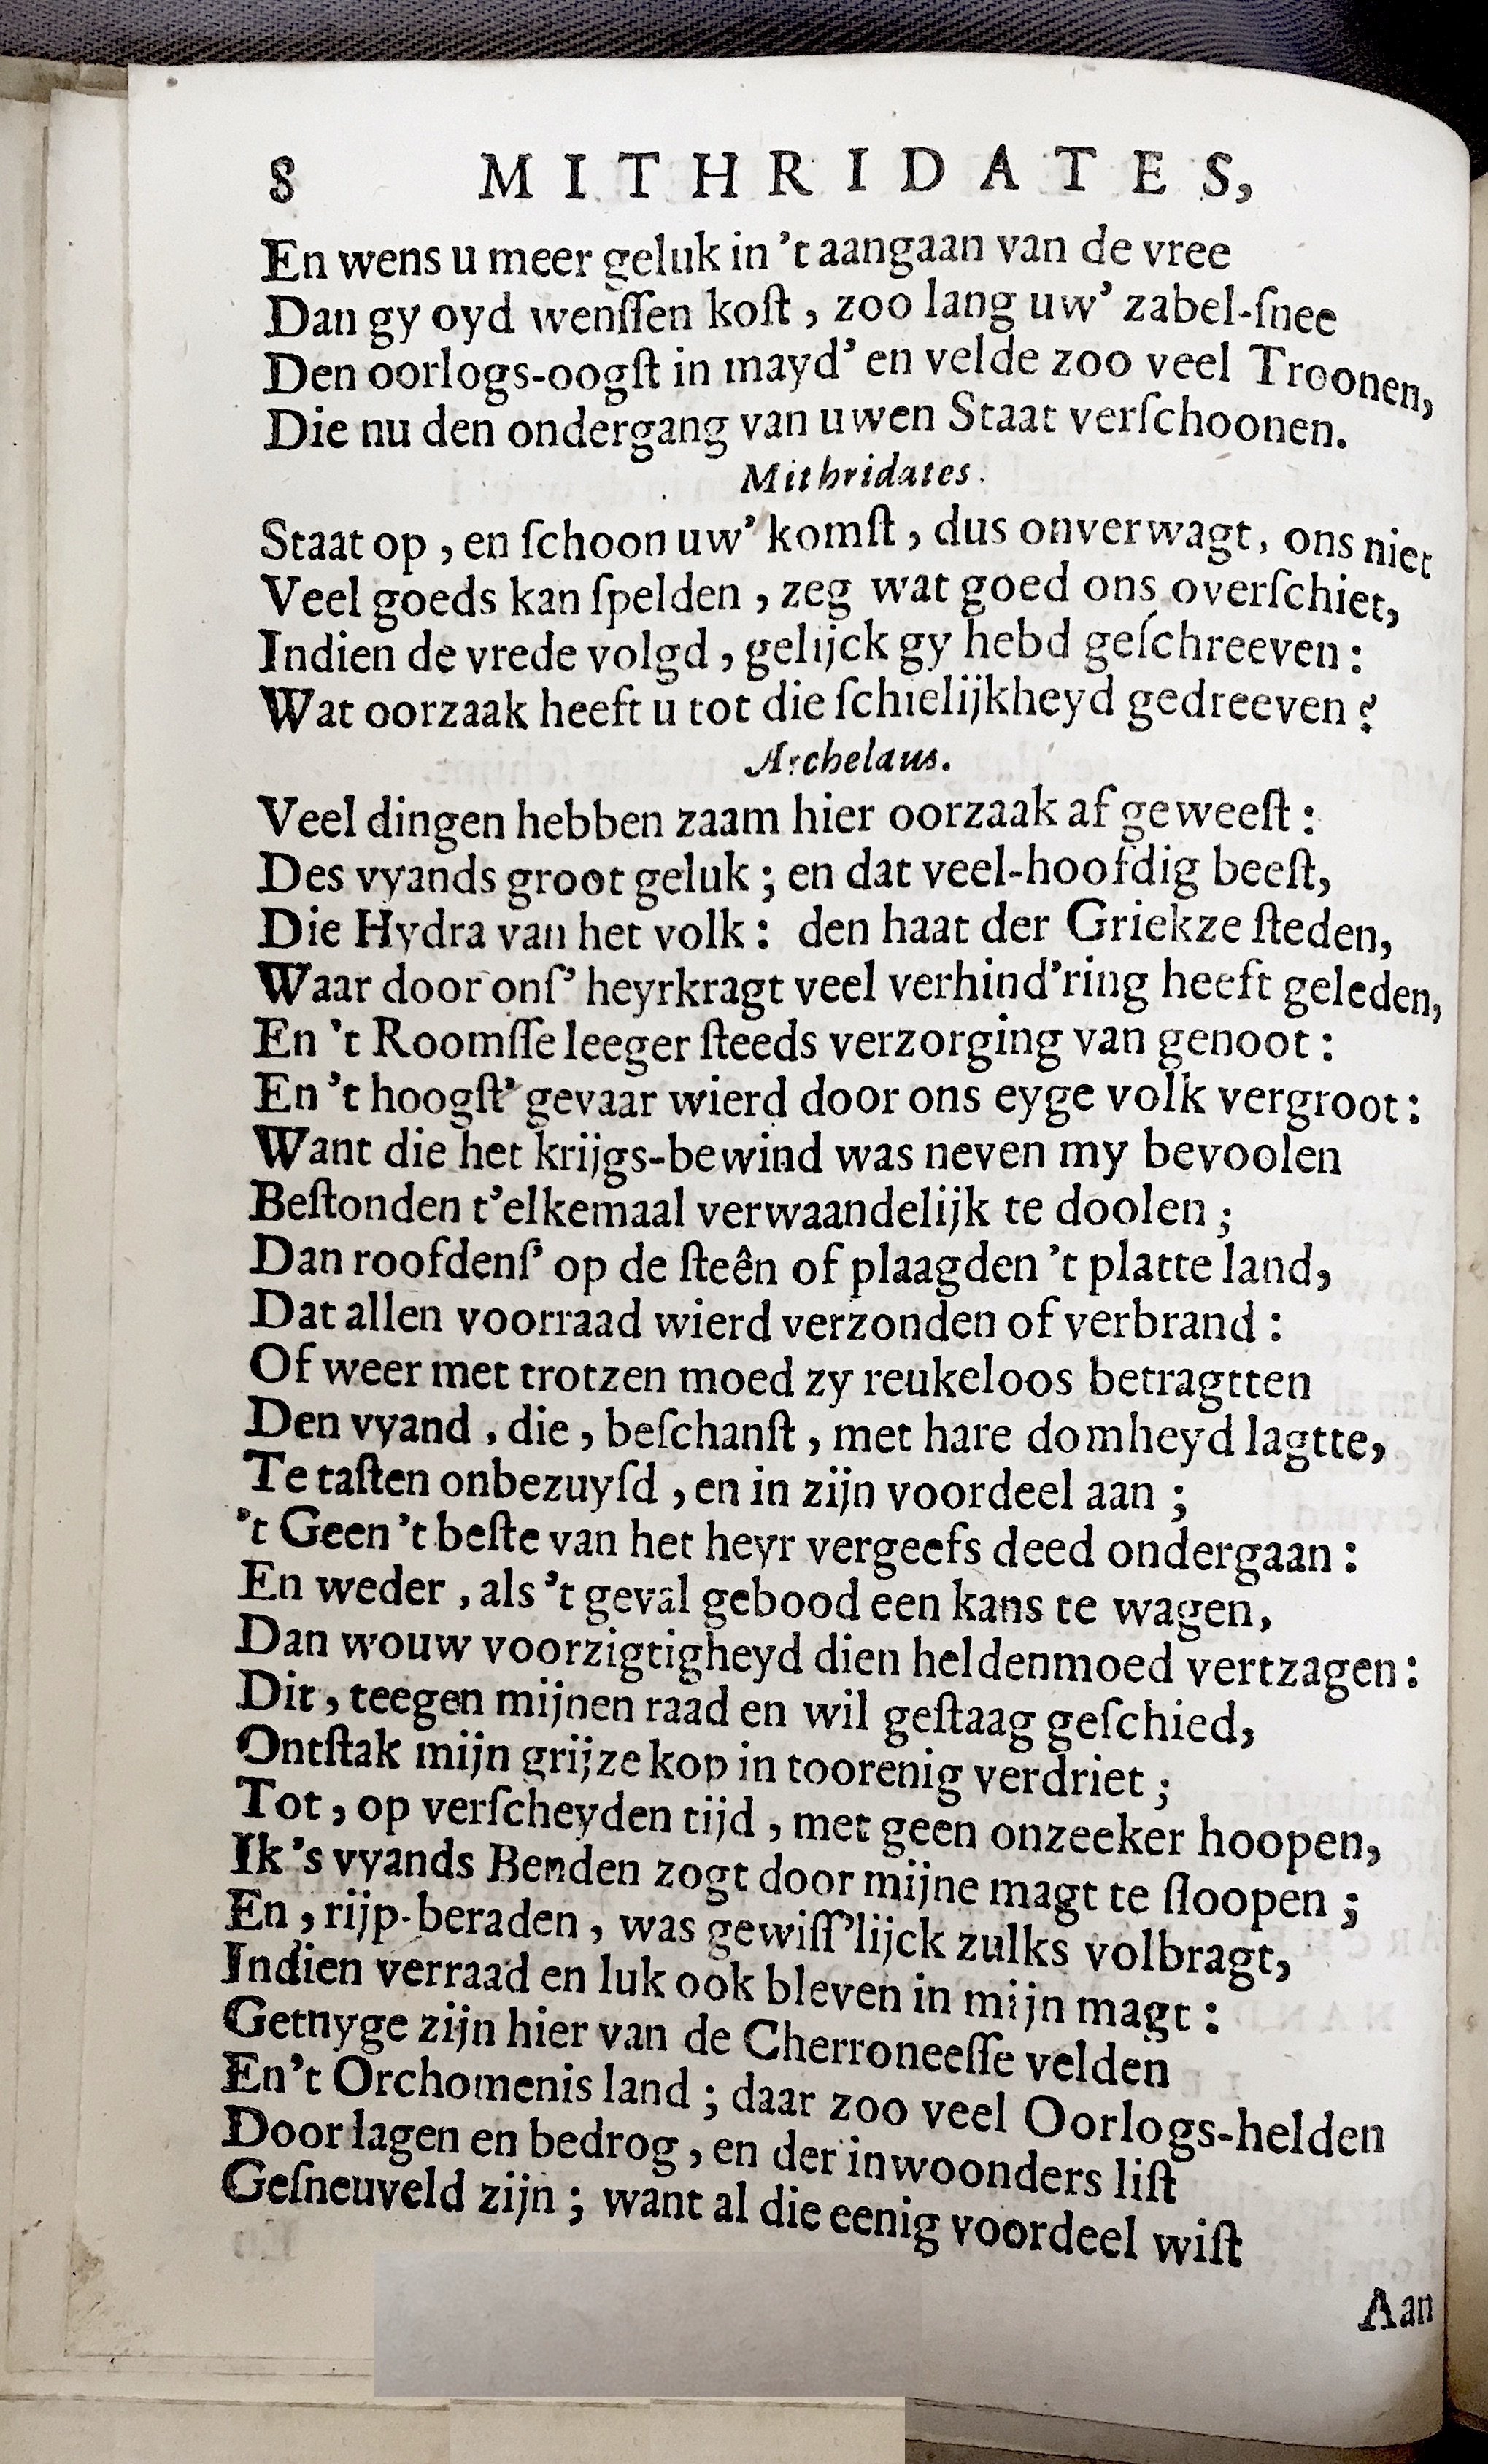 8 MITHRIDATES,
En wens u meer geluk in 't aangaan van de vree
Dan gy oyd wenſſen koſt, zoo lang uw' zabel-ſnee
Den oorlogs-oogſt in mayd' en velde zoo veel Troonen,
Die nu den ondergang van uwen Staat verſchoonen.
Mithridates.
Staat op, en ſchoon uw' komſt, dus onverwagt, ons niet
Veel goeds kan ſpelden, zeg wat goed ons overſchiet,
Indien de vrede volgd, gelijck gy hebd geſchreeven:
Wat oorzaak heeft u tot die ſchielijkheyd gedreeven?
Archelaus.
Veel dingen hebben zaam hier oorzaak af geweeſt:
Des vyands groot geluk; en dat veel-hoofdig beeſt,
Die Hydra van het volk: den haat der Griekze ſteden,
Waar door onſ' heyrkragt veel verhind'ring heeft geleden,
En 't Roomſſe leeger ſteeds verzorging van genoot:
En 't hoogſt' gevaar wierd door ons eyge volk vergroot:
Want die het krijgs-bewind was neven my bevoolen
Beſtonden t'elkemaal verwaandelijk te doolen;
Dan roofdenſ' op de ſteên of plaagden 't platte land,
Dat allen voorraad wierd verzonden of verbrand:
Of weer met trotzen moed zy reukeloos betragtten
Den vyand, die, beſchanſt, met hare domheyd lagtte,
Te taſten onbezuyſd, en in zijn voordeel aan;
't Geen 't beſte van het heyr vergeefs deed ondergaan:
En weder, als 't geval gebood een kans te wagen,
Dan wouw voorzigtigheyd dien heldenmoed vertzagen:
Dit, teegen mijnen raad en wil geſtaag geſchied,
Ontſtak mijn grijze kop in toorenig verdriet;
Tot, op verſcheyden tijd, met geen onzeeker hoopen,
Ik 's vyands Benden zogt door mijne magt te ſloopen;
En, rijp-beraden, was gewiſſ'lijck zulks volbragt,
Indien verraad en luk ook bleven in mijn magt:
Getnyge zijn hier van de Cherroneeſſe velden
En't Orchomenis land; daar zoo veel Oorlogs-helden
Door lagen en bedrog, en der inwoonders liſt
Geſneuveld zijn; want al die eenig voordeel wiſt
Aan